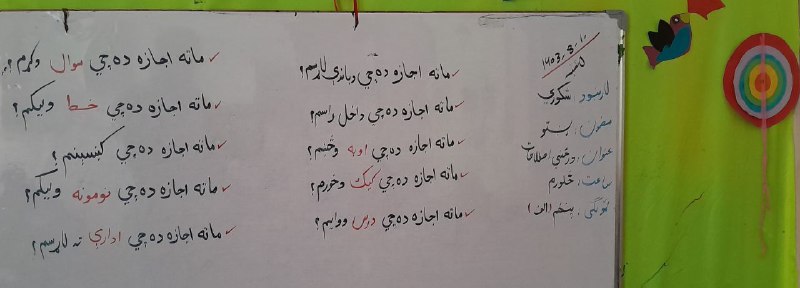 ۱۴۰۳.۸.۱۰
لارښود شکوري
مضمون: پښتو
عنوان: درسي اصطلاحات
ساعت: څلورم
ټولګی: پنځم (الف)
ماته اجازه ده چي دباندي لاړسم؟
ماته اجازه ده چي داخل راسم؟
ماته اجازه ده چي اوبه وڅښم؟
ماته اجازه ده چي کیک وخورم؟
ماته اجازه ده چي درس ووایم؟
ماته اجازه ده چي سوال وکړم؟
ماته اجازه ده چي خط ولیکم؟
ماته اجازه ده چي کښېنم؟
ماته اجازه ده چي نومونه ولیکم؟
ماته اجازه ده چي ادارې ته لاړسم؟